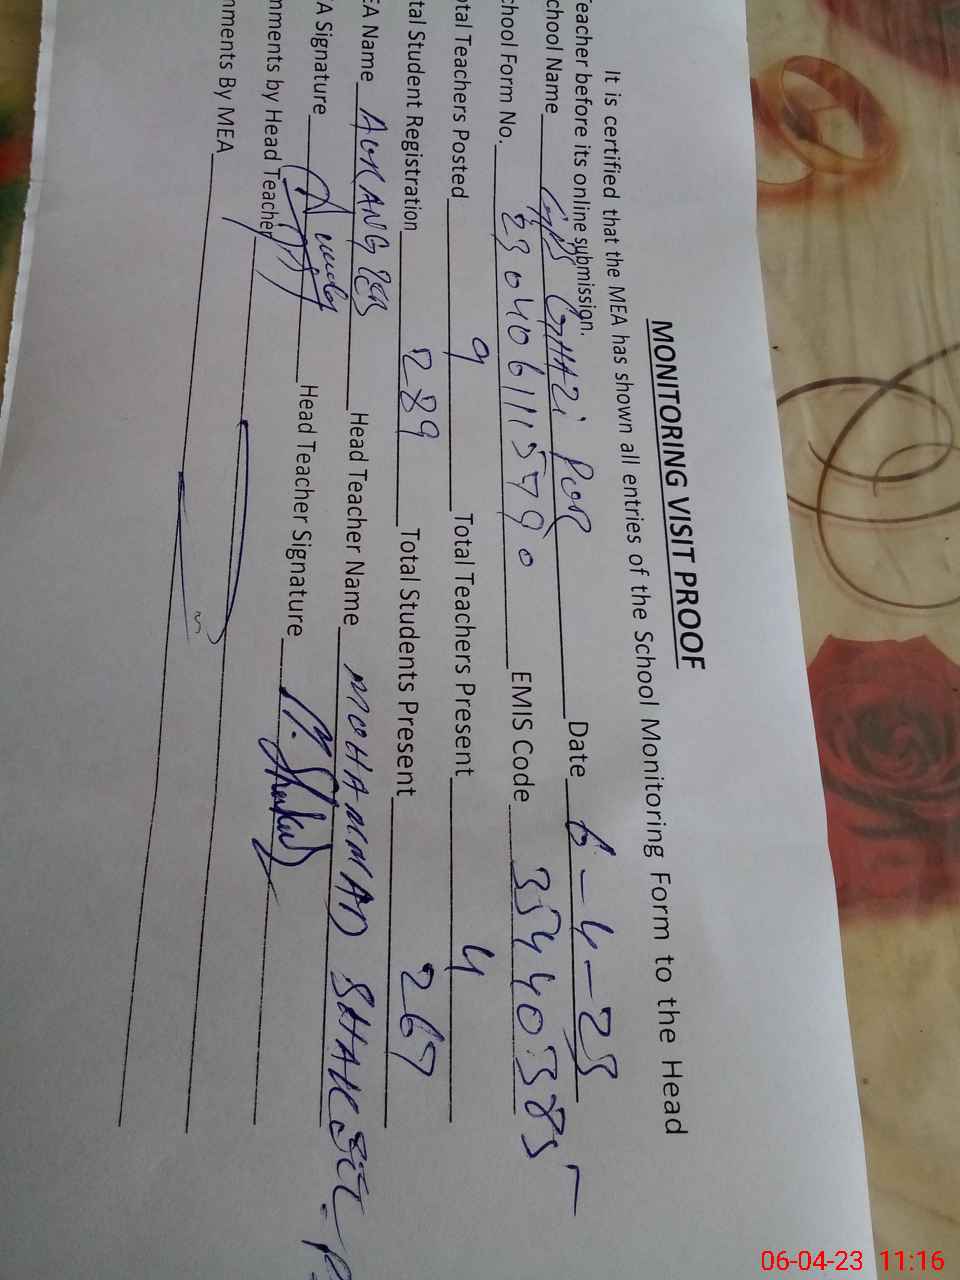 MONITORING VISIT PROOF
It is certified that the MEA has shown all entries of the School Monitoring Form to the Head
Teacher before its online submission.
chool Name GPS GHAZI POR Date 6-4-23
chool Form No. 230406111590 EMIS Code 35440385
otal Teachers Posted 9 Total Teachers Present 4
tal Student Registration 289 Total Students Present 267
EA Name AURANGZEB Head Teacher Name MOHAMMAD
A Signature Head Teacher Signature
mments by Head Teacher
mments By MEA
06-04-23 11:16